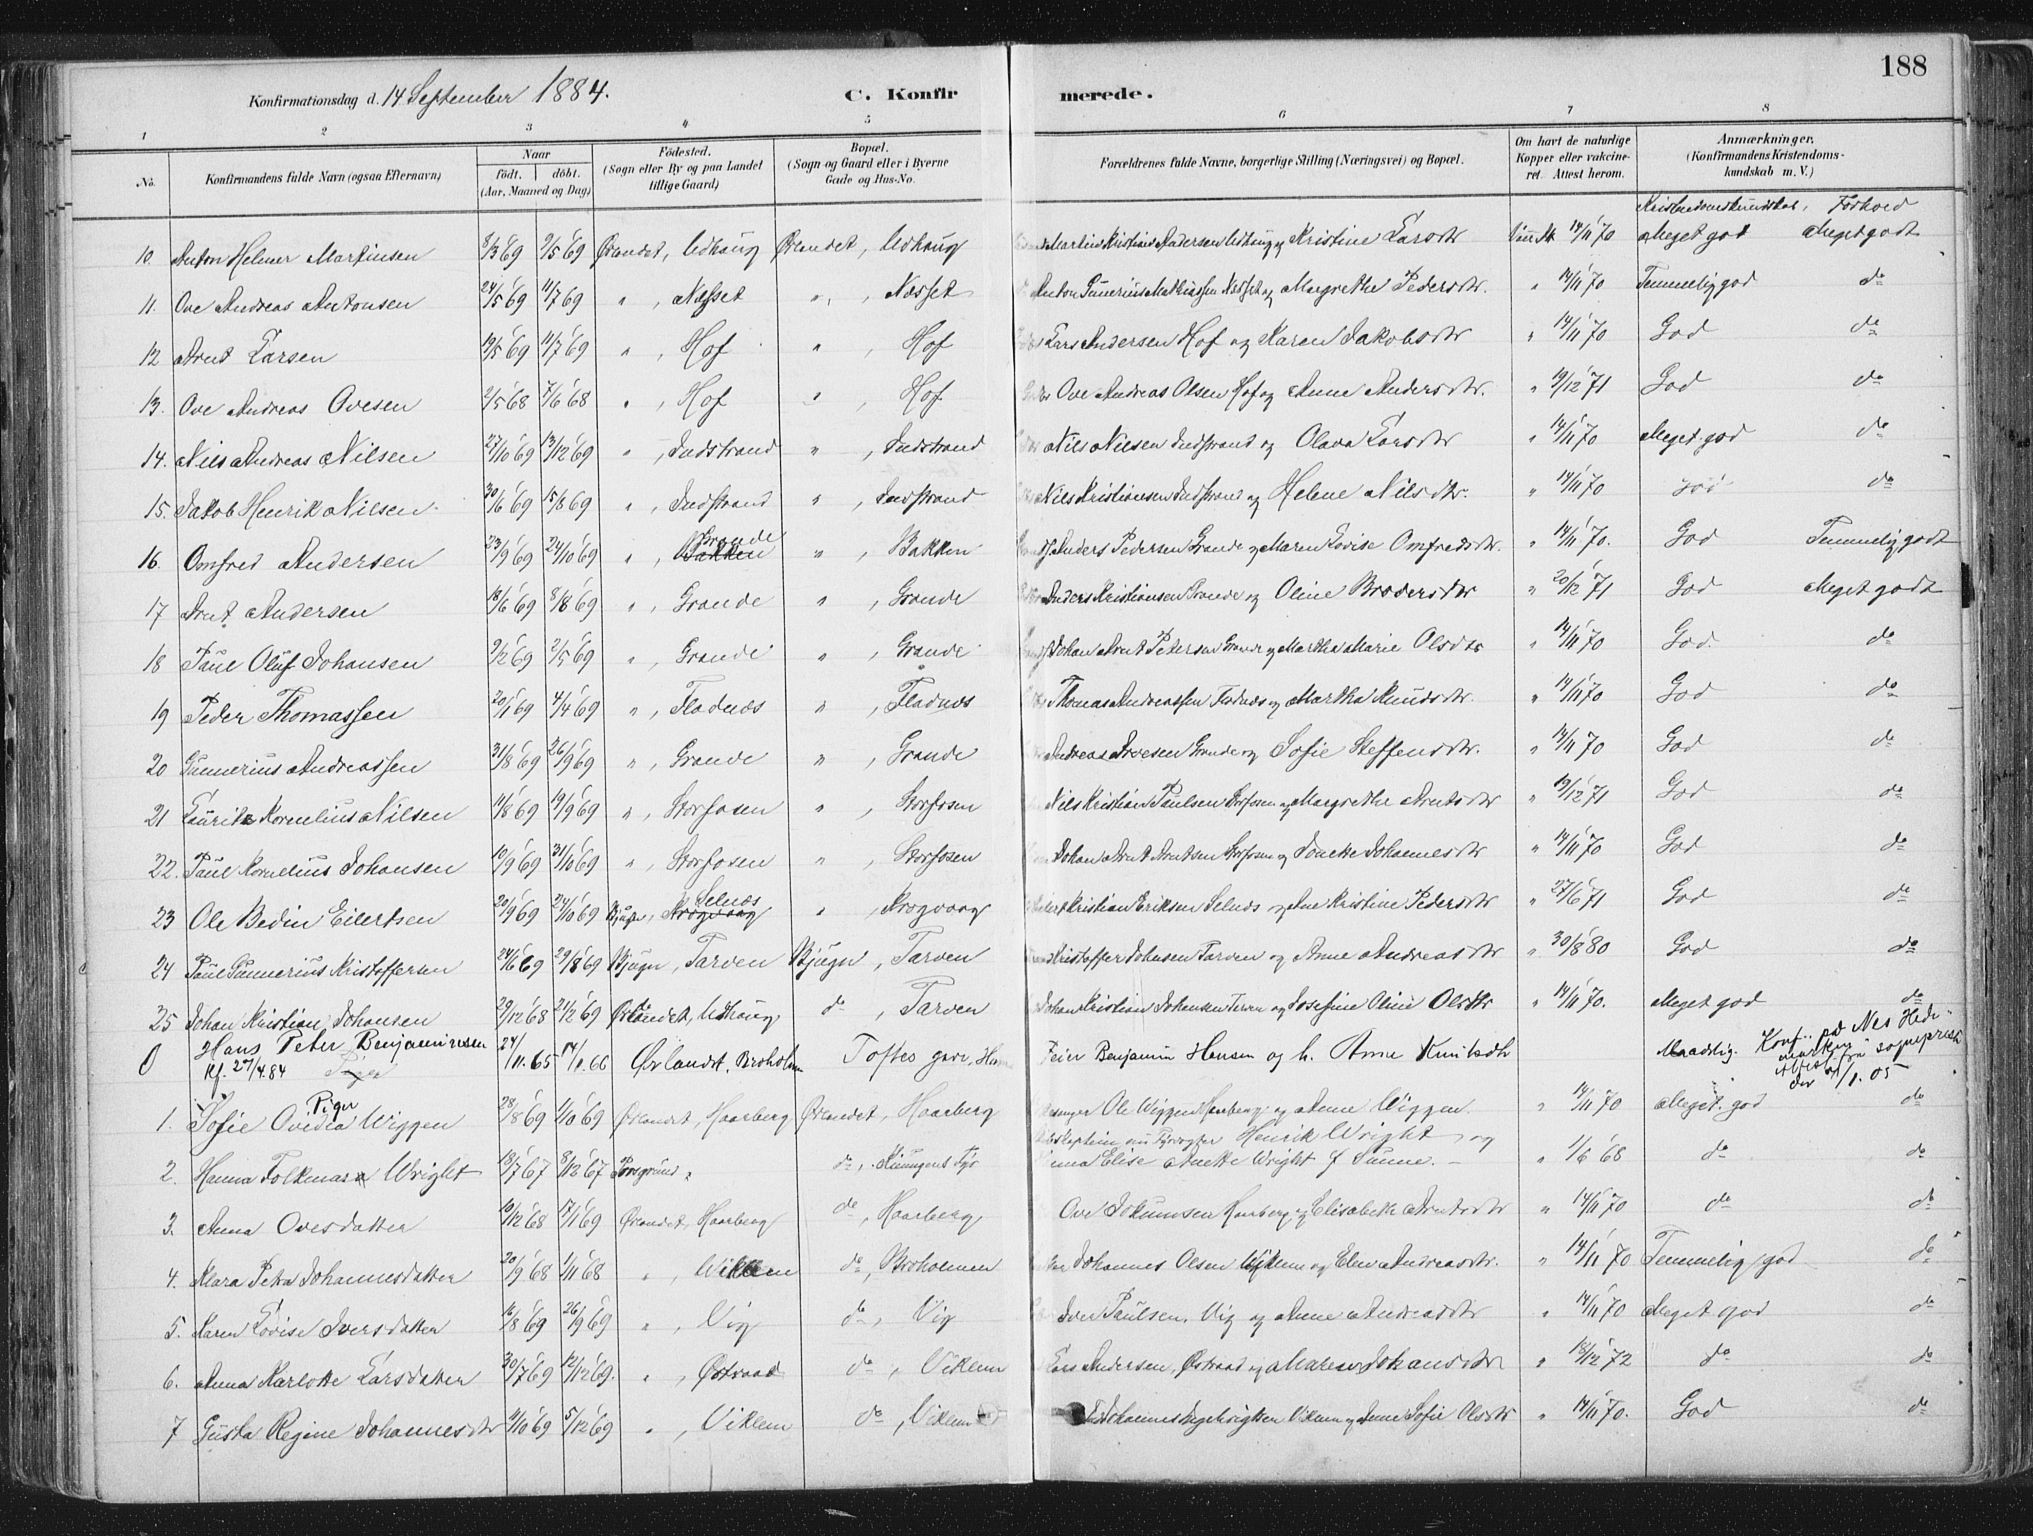 188
Konfirmationsdag d. 14 September 1884. C. Konfir merede.
1 2 3 4 5 6 7 8
No. Konfirmandens fulde Navn (ogsaa Efternavn) Naar født. døbt. (Aar, Maaned og Dag) Fødested. (Sogn eller By og paa Landet tillige Gaard) Bopæl. (Sogn og Gaard eller i Byerne Gade og Hus-No. Forældrenes fulde Navne, borgerlige Stilling (Næringsvei) og Bopæl. Om havt de naturlige Kopper eller vakcineret. Attest herom. Anmærkninger. (Konfirmandens Kristendomskundskab m. V.)
Kristendomskundskab, Forhold
10. Anton Helmer Martinsen 8/3 69 9/5 69 Ørlandet, Udhaug Ørlandet, Udhaug Martin Kristian Andersen Udhaug og Kristine Larsdtr 14/11 70 Meget god Meget godt
11. Ove Andreas Antonsen 24/5 69 11/7 69 " , Næsset " , Næsset Anton Gunerius Mathiassen Næsset og Margrethe Pedersdtr. " 14/11 70 Temmelig god do
12 Arnt Larsen 19/5 69 11/7 69 " , Hof " , Hof Lars Andersen Hof og Karen Jakobsdtr " 14/11 70 God do
13. Ove Andreas Ovesen 2/5 68 7/6 68 " , Hof " , Hof Ove Andreas Olsen Hof og Anne Andersdtr. " 19/12 71 God do
14. Nils Andreas Nilsen 27/10 69 13/12 69 " , Indstrand " , Indstrand Nils Nilsen Indstrand og Olava Larsdtr " 14/11 70 Meget god do
15. Jakob Henrik Nilsen 30/6 69 15/8 69 " , Indstrand " , Indstrand Nils Kristiansen Indstrand og Helene Nilsdtr. " 14/11 70 god do
16 Omfred Andersen 23/9 69 24/10 69 " , Bakken Grande " , Bakken Anders Pedersen Grande og Maren Lovise Omfredsdtr. " 14/11 70. God Temmelig godt
17 Arnt Andersen 18/6 69 8/8 69 " , Grande " , Grande Anders Kristiansen Grande og Oline Brodersdtr " 20/12 71 God Meget godt
18 Paul Oluf Johansen 9/2 69 2/5 69 " , Grande " , Grande Johan Arnt Petersen Grande og Martha Marie Olsdtr " 14/11 70 God. do
19 Peder Thomassen 20/1 69 4/4 69 " , Fladnæs " , Fladnæs Thomas Andreassen Fladnæs og Martha Knudsdtr. " 14/11 70 God do
20 Gunnerius Andreassen 31/8 69 26/9 69 " , Grande " , Grande Andreas Arvesen Grande og Sofie Steffensdtr. " 14/11 70 God do
21 Lauritz Kornelius Nilsen 11/8 69 19/9 69 " , Storfosen " , Storfosen Nils Kristian Paulsen Storfosen og Margrethe Arntsdtr " 19/12 71 God do
22. Paul Kornelius Johansen 10/9 69 31/10 69 " , Storfosen " , Storfosen Johan Arnt Arntsen Storfosen og Johannesdtr " 14/11 70 God do
23 Ole Bedin Eilertsen 20/9 69 24/10 69 Bjugn, Selnæs " , Krogvaag Kristian Eriksen Selnæs og Ane Kristine Pedersdtr " 27/6 71 God do
24 Paul Gunnerius Kristoffersen 24/6 69 29/8 69 Bjugn, Tarven Bjugn, Tarven Kristoffer Johnsen Tarven og Anne Andreasdtr " 30/8 80 God do
25 Johan Kristian Johansen 29/12 68 21/2 69 Ørlandet, Udhaug do , Tarven Johan Kristian Johansen Tarven og Josefine Oline Olsdtr " 14/11 70. Meget god do
0 Hans Peter Benjaminsen 24/11. 65 14/1. 66 Ørlandet, Broholm Toftes gave, Feier Benjamin Hansen og h. Anne Knutsdtr Maadelig. Konf. på Nes Hedemarken
Kf. 27/4.84 Attest fra sogneprest der 1. 05
Piger
1. Sofie Ovidia Wiggen 28/8 69 1/10 69 Ørlandet, Haarberg Ørlandet, Haarberg Ole Wiggen Haarberg og Anne Wiggen. " 14/11 70 Meget god do
2. Hanna Folkmara Wright 13/7 67 8/12 67 Porsgrund " do, Kiungens Fyr Fyrvogter Henrik Wright og Elise Anette Wright f Sunne. " 1/6 68 do do
3. Anna Ovesdatter 10/12 68 17/1 69 Ørlandet, Haarberg do , Haarberg Ove Jokumsen Haarberg og Elisabeth Arntsdtr " 14/11 70 do do
4. Klara Petra Johannesdatter 20/9 68 1/11 68 " , Viklem do, Broholmen Johannes Olsen Viklem og Elen Andreasdtr. " 14/11 70 Temmelig god do
5. Karen Lovise Iversdatter 16/8 69 26/9 69 " , Vig do , Vig Iver Paulsen, Vig og Anne Andreasdtr " 14/11 70 Meget god do
6. Anna Karlotte Larsdatter 30/7 69 12/12 69. " , Østraad do , Viklem Lars Andersen, Østraad og Maren Johansdtr " 13/12 72 do do
7 Gusta Regine Johannesdtr 9/10 69 5/12 69 " , Viklem do , Viklem Johannes Viklem og Anne Sofie Olsdtr " 14/11 70. God do